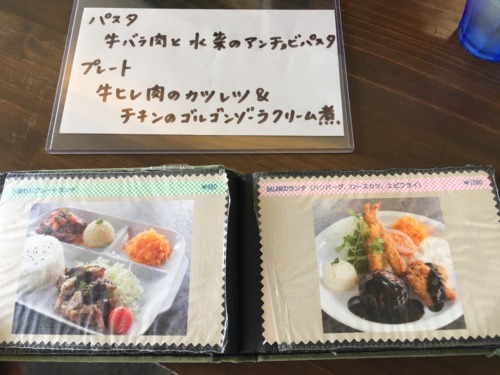 パスタ
牛バラ肉と水菜のアンチョビパスタ
プレート
牛ヒレ肉のカツレツ&
チキンのゴルゴンゾーラクリーム煮
日替わりプレートランチ
BALANSOランチ（ハンバーグ、ロースカツ、エビフライ）